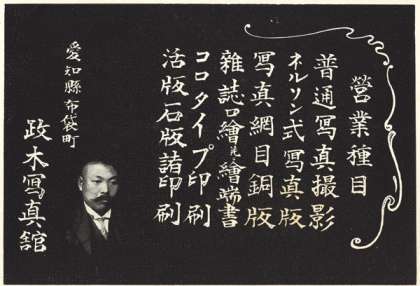 營業種目
普通寫真撮影
ネルソン式寫真版
寫真網目銅版
雜誌口繪見繪端書
コロタイプ印刷
活版石版諸印刷
愛知縣布袋町
政木寫真舘